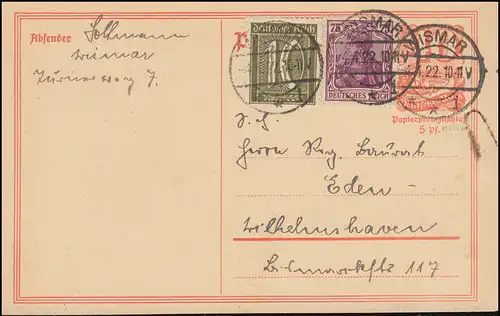 Absender
Sothmann
Wismar
Zürnerweg 7.
P
10
Deutsches Reich
75
DEUTSCHES REICH
WISMAR
.22.10-11V
WISMAR
.22.10-11V
Papierpreiszuschlag
5 Pf.
S. H.
Herrn Reg. Baurat
Eden
Wilhelmshaven
Bismarckstr 117